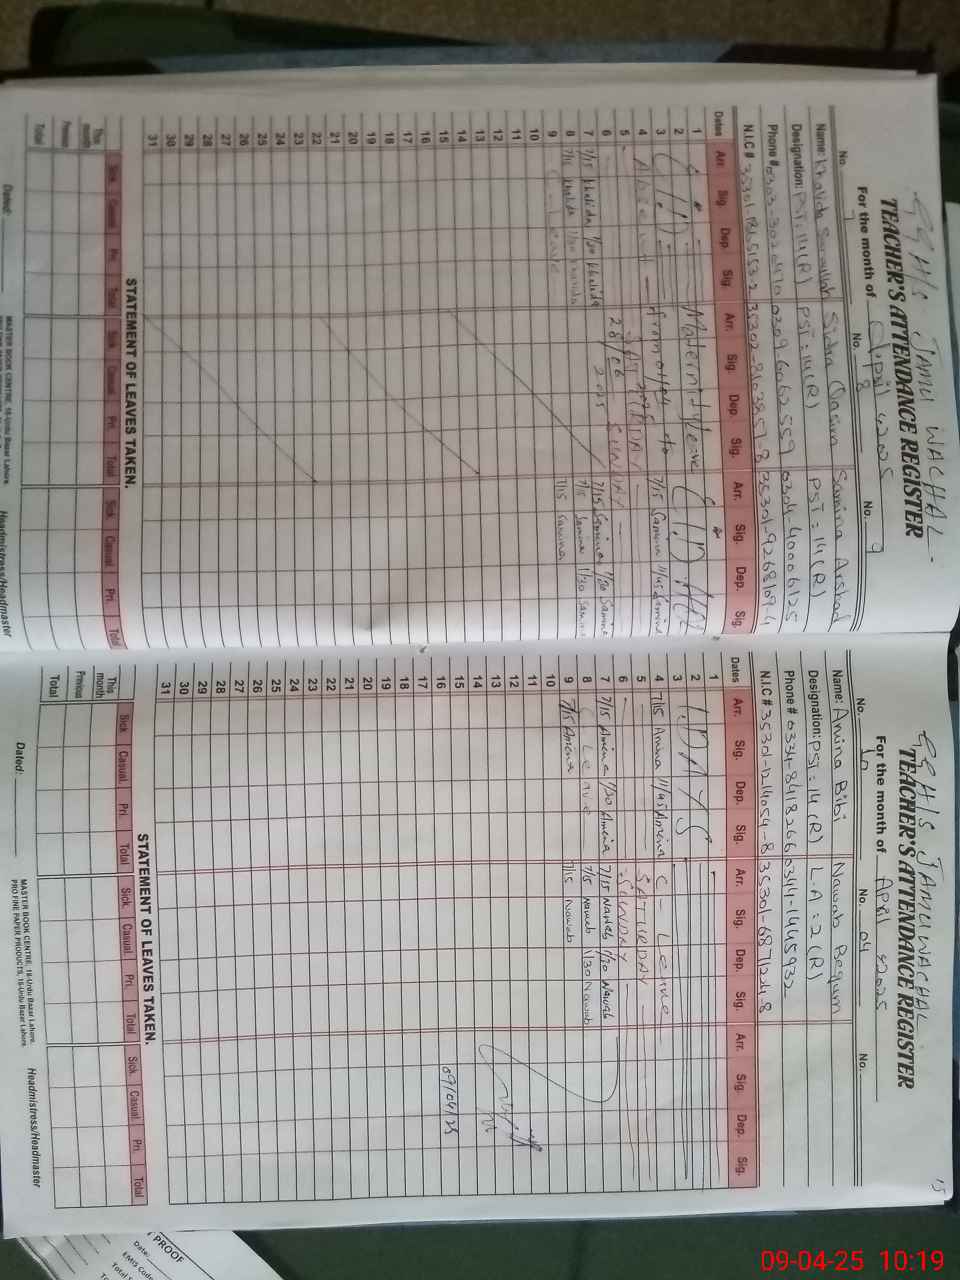 GGHS JAMUWACHAL
TEACHER'S ATTENDANCE REGISTER
For the month of April 2025
No. 7 No. 8 No. 9
Name: Khalida Sanaullah Sidra Qasim Samina Arshad
Designation: PST = 14 (R) PST = 14 (R) PST = 14 (R)
Phone # 0309-6062559 0304-40006125
N.I.C #
Dates Arr. Sig. Dep. Sig. Arr. Sig. Dep. Sig. Arr. Sig. Dep. Sig.
1
2 Maternity Leave
3 From 01/04 to 7/15 Samina 11/45 Samina
4 Absent
5 SATURDAY
6 28/06 SUNDAY
7 7/15 khalida 1/30 khalida 2025 7/15 Samina 1/30 Samina
8 7/15 khalida 1/30 khalida 7/15 Samina 1/30 Samina
9 C - Leave 7/15 Samina
10
11
12
13
14
15
16
17
18
19
20
21
22
23
24
25
26
27
28
29
30
31
STATEMENT OF LEAVES TAKEN.
Sick Casual Pri. Total Sick Casual Pri. Total Sick Casual Pri. Total
This month
Previous
Total
Dated:
MASTER BOOK CENTRE, 16-Urdu Bazar Lahore.
Headmistress/Headmaster
15
GGHS JAMUWACHAL
TEACHER'S ATTENDANCE REGISTER
For the month of April 2025
No. 10 No. 04 No.
Name: Amina Bibi Nawab Begum
Designation: PST = 14 (R) L.A = 2 (R)
Phone # 0334-8418266 0344-1445932
N.I.C # 35301-1214054-8 35301-6871224-8
Dates Arr. Sig. Dep. Sig. Arr. Sig. Dep. Sig. Arr. Sig. Dep. Sig.
1
2 DAYS
3
4 7/15 Amina 11/45 Amina C - Leave
5 SATURDAY
6 SUNDAY
7 7/15 Amina 1/30 Amina 7/15 Nawab 1/30 Nawab
8 C Leave 7/15 Nawab 1/30 Nawab
9 7/15 Amina 7/15 Nawab
10
11
12
13
14
15
16 09/04/25
17
18
19
20
21
22
23
24
25
26
27
28
29
30
31
STATEMENT OF LEAVES TAKEN.
Sick Casual Pri. Total Sick Casual Pri. Total Sick Casual Pri. Total
This month
Previous
Total
Dated:
MASTER BOOK CENTRE, 16-Urdu Bazar Lahore.
PRO FINE PAPER PRODUCTS, 16-Urdu Bazar Lahore.
Headmistress/Headmaster
PROOF
Date:
EMIS Code
09-04-25 10:19